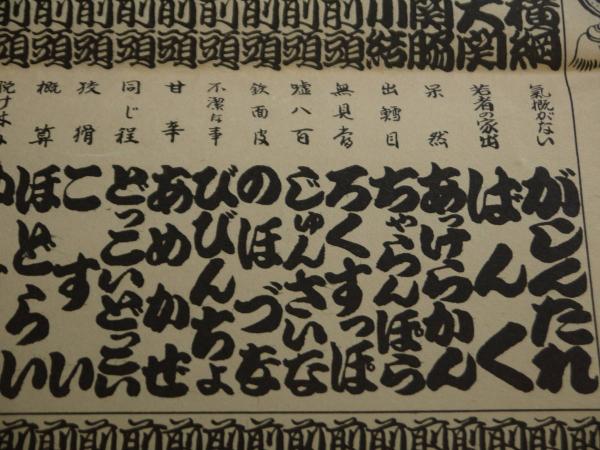 横綱
氣概がない
がしんたれ
大関
若者の家出
ばんく
関脇
呆然
あっけらかん
小結
出鱈目
ちゃらんぽらん
前頭
無見當
ろくすっぽ
前頭
嘘八百
じゅんさいな
前頭
鉄面皮
のほづな
前頭
不潔な事
びびんちょ
前頭
甘辛
あめかぜ
前頭
同じ程
どっこいどっこい
前頭
狡猾
こすい
前頭
概算
ほどらい
前頭
前前前前前前前前前前前前